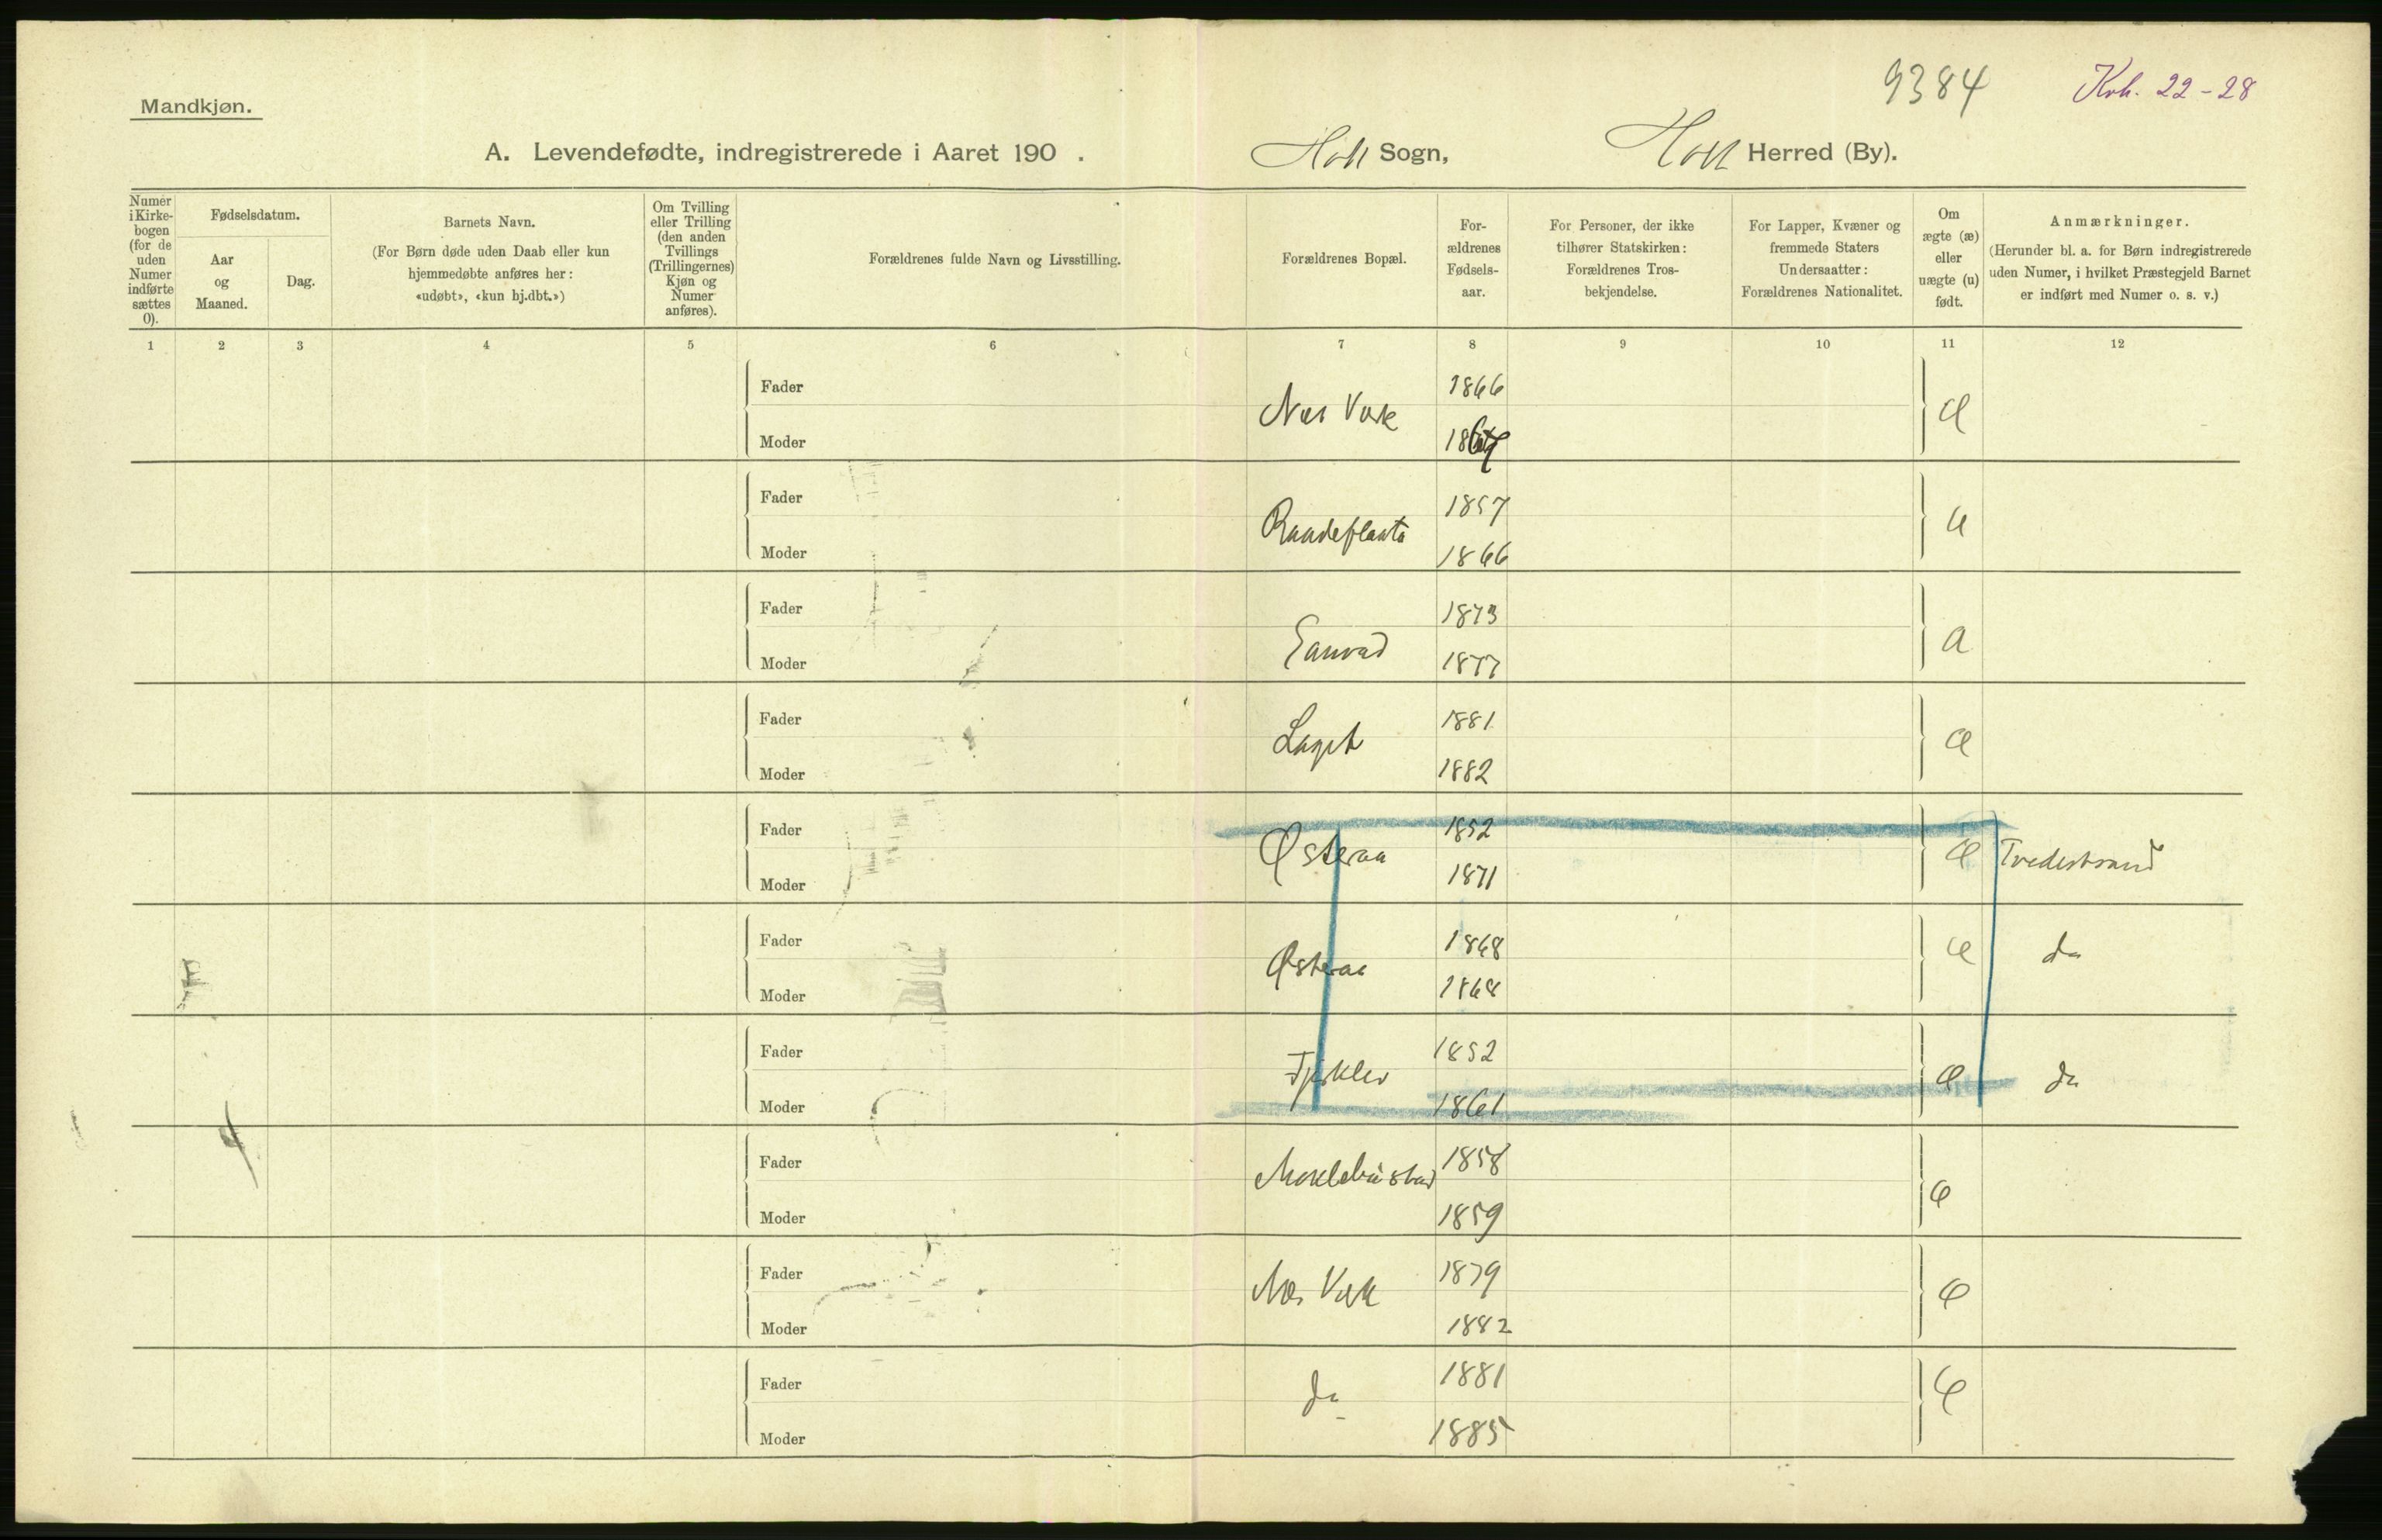 9384 Krh. 22-28
Mandkjøn.
A. Levendefødte, indregistrerede i Aaret 190 . Holt Sogn, Holt Herred (By).
Numer i Kirkebogen (for de uden Numer indførte sættes 0).
Fødselsdatum.
Aar og Maaned.
Dag.
Barnets Navn.
(For Børn døde uden Daab eller kun
hjemmedøbte anføres her:
«udøbt», «kun hj.dbt.»)
Om Tvilling
eller Trilling
(den anden
Tvillings
(Trillingernes)
Kjøn og
Numer
anføres).
Forældrenes fulde Navn og Livsstilling.
Forældrenes Bopæl.
For-
ældrenes
Fødsels-
aar.
For Personer, der ikke
tilhører Statskirken:
Forældrenes Tros-
bekjendelse.
For Lapper, Kvæner og
fremmede Staters
Undersaatter:
Forældrenes Nationalitet.
Om
ægte (æ)
eller
uægte (u)
født.
Anmærkninger.
(Herunder bl. a. for Børn indregistrerede
uden Numer, i hvilket Præstegjeld Barnet
er indført med Numer o. s. v.)
1 2 3 4 5 6 7 8 9 10 11 12
Fader 1866
Næs Værk æ
Moder
Fader 1857
Moder 1866
Fader 1873
Moder 1877
Fader 1881
Laget æ
Moder 1882
Fader 1852
Østeraa æ Tvedestrand
Moder 1871
Fader 1868
Østeraa æ do
Moder 1868
Fader 1852
æ do
Moder 1861
Fader 1858
æ
Moder 1859
Fader 1879
Næs Værk æ
Moder 1882
Fader 1881
do æ
Moder 1885